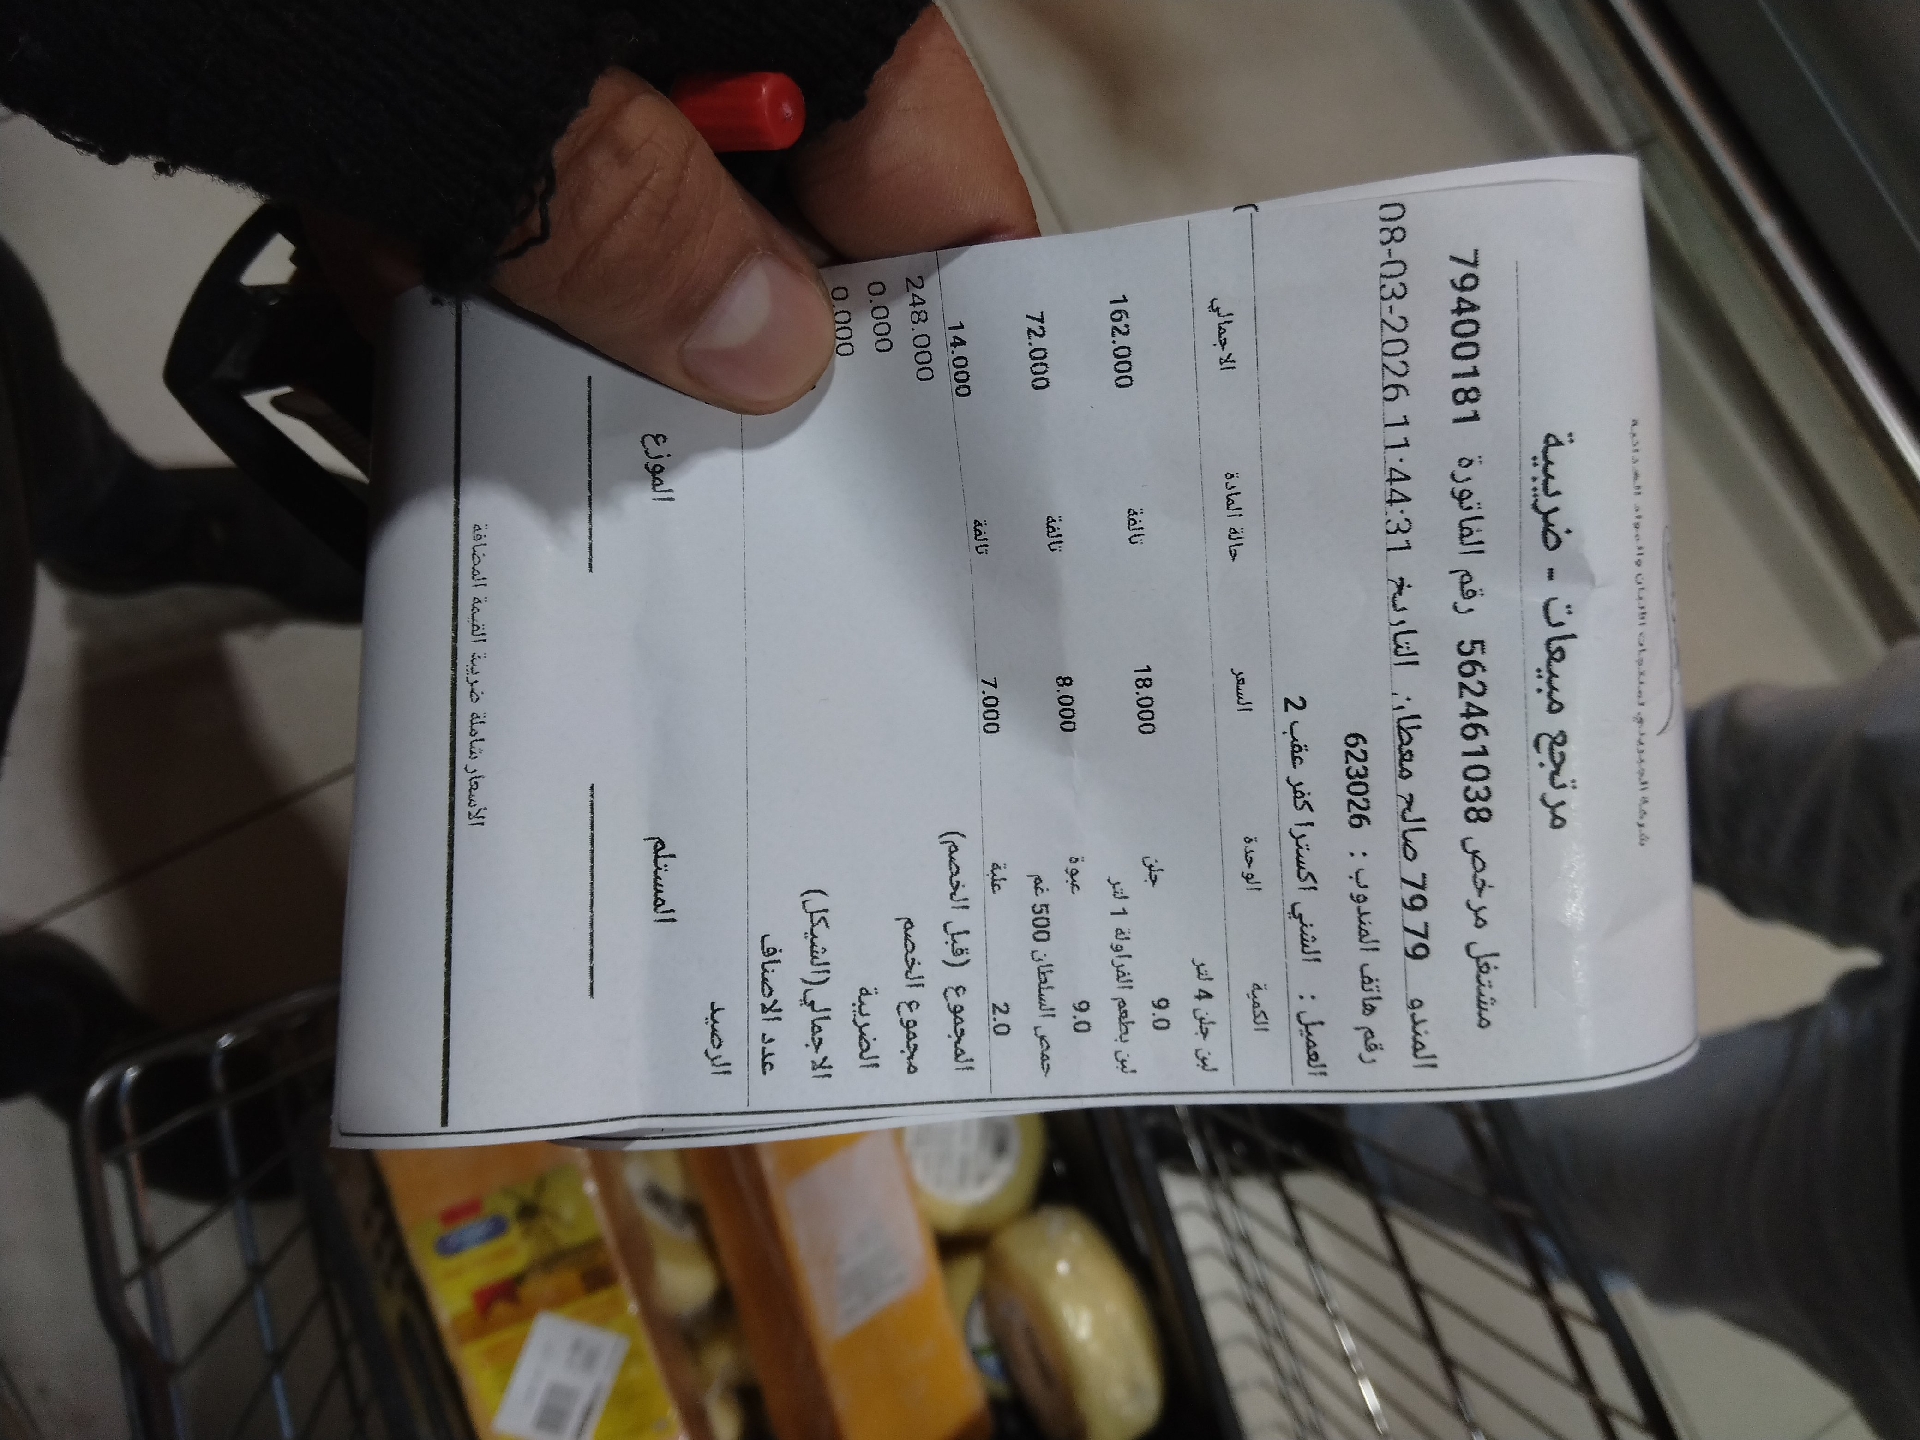 شركة الجنيدي لمنتجات الألبان والمواد الغذائية
مرتجع مبيعات - ضريبية
مشتغل مرخص 562461038 رقم الفاتورة 79400181
المندو 79 79 صالح معطان: التاريخ 08-03-2026 11:44:31
رقم هاتف المندوب : 623026
العميل : الشني اكسترا كفر عقب 2 )
الكمية الوحدة السعر حالة المادة الاجمالي
لبن جلن 4 لتر
9.0 جلن 18.000 تالفة 162.000
لبن بطعم الفراولة 1 لتر
9.0 عبوة 8.000 تالفة 72.000
حمص السلطان 500 غم
2.0 علبة 7.000 تالفة 14.000
المجموع (قبل الخصم) 248.000
مجموع الخصم 0.000
الضريبة 0.000
الاجمالي(الشيكل)
عدد الاصناف
الرصيد
المستلم الموزع
الاسعار شاملة ضريبة القيمة المضافة